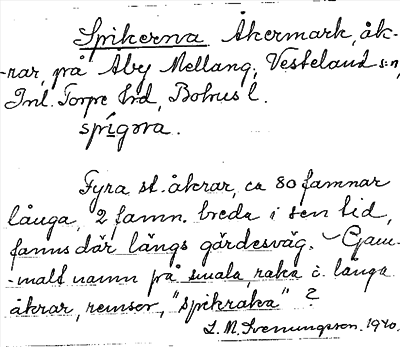 Spikerna Åkermark, åk-
-rar, på Åby Mellang, Vesteland s:n,
Inl. Torpe hrd, Bohus l.
spigɔra.
Fyra st. åkrar, ca 80 famnar
långa, 2 famn. breda i sen tid,
fanns där längs gärdesväg. - Gam-
-malt namn på smala, raka o. långa
åkrar, remsor, "spikraka" ?
L. M. Svenungsson. 1940.